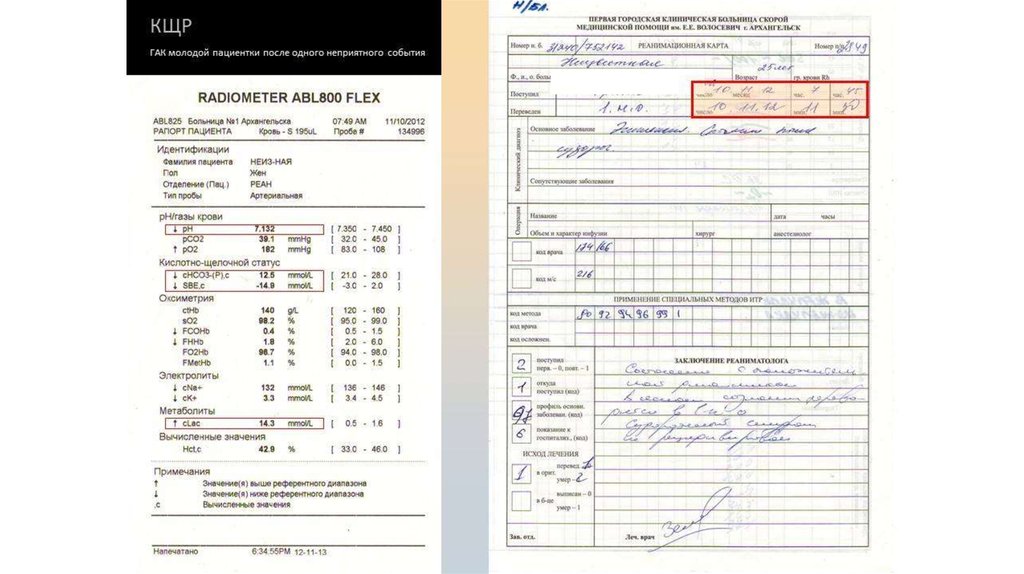 КЩР
ГАК молодой пациентки после одного неприятного события
RADIOMETER ABL800 FLEX
ABL825 Больница №1 Архангельска 07:49 AM 11/10/2012
РАПОРТ ПАЦИЕНТА Кровь - S 195uL Проба # 134996
Идентификации
Фамилия пациента НЕИЗ-НАЯ
Пол Жен
Отделение (Пац.) РЕАН
Тип пробы Артериальная
pH/газы крови
↓ pH 7.132 [ 7.350 - 7.450 ]
pCO2 39.1 mmHg [ 32.0 - 45.0 ]
↑ pO2 182 mmHg [ 83.0 - 108 ]
Кислотно-щелочной статус
↓ cHCO3-(P),c 12.5 mmol/L [ 21.0 - 28.0 ]
↓ SBE,c -14.9 mmol/L [ -3.0 - 2.0 ]
Оксиметрия
ctHb 140 g/L [ 120 - 160 ]
sO2 98.2 % [ 95.0 - 99.0 ]
↓ FCOHb 0.4 % [ 0.5 - 1.5 ]
↓ FHHb 1.8 % [ 2.0 - 6.0 ]
FO2Hb 96.7 % [ 94.0 - 98.0 ]
FMetHb 1.1 % [ 0.0 - 1.5 ]
Электролиты
↓ cNa+ 132 mmol/L [ 136 - 146 ]
↓ cK+ 3.3 mmol/L [ 3.4 - 4.5 ]
Метаболиты
↑ cLac 14.3 mmol/L [ 0.5 - 1.6 ]
Вычисленные значения
Hct,c 42.9 % [ 33.0 - 46.0 ]
Примечания
↑ Значение(я) выше референтного диапазона
↓ Значение(я) ниже референтного диапазона
,c Вычисленные значения
Напечатано 6:34:55PM 12-11-13
Н/Бл.
ПЕРВАЯ ГОРОДСКАЯ КЛИНИЧЕСКАЯ БОЛЬНИЦА СКОРОЙ
МЕДИЦИНСКОЙ ПОМОЩИ им. Е.Е. ВОЛОСЕВИЧ г. АРХАНГЕЛЬСК
Номер и. б. РЕАНИМАЦИОННАЯ КАРТА Номер
Неизвестная 25 лет
Ф., и., о. больн Возраст гр. крови Rh
Поступил число 10 месяц 11 12 час. 7 45
Переведен 1. Н.О. число 10 11.12 мин. 11 мин.
Клинический диагноз
Основное заболевание
судорог.
Сопутствующие заболевания
Операция
Название дата часы
Объем и характер инфузии хирург анестезиолог
код врача 174/66
код м/с 216
ПРИМЕНЕНИЕ СПЕЦИАЛЬНЫХ МЕТОДОВ ИТР
код метода 80 92 94 96 99 1
код врача
код осложнен.
2 поступил
перв. – 0, повт. – 1
ЗАКЛЮЧЕНИЕ РЕАНИМАТОЛОГА
Состояние с положитель
ной динамикой
1 откуда
поступил (код)
В ясном сознании перево
дится в 1 н/о
профиль основн.
заболеван. (код)
Судорожный синдром
не рецидивировал
6 показание к
госпитализ., (код)
ИСХОД ЛЕЧЕНИЯ
1 в орит. перевед. 1
умер - 2
в б-це выписан – 0
умер – 1
Зав. отд. Леч. врач